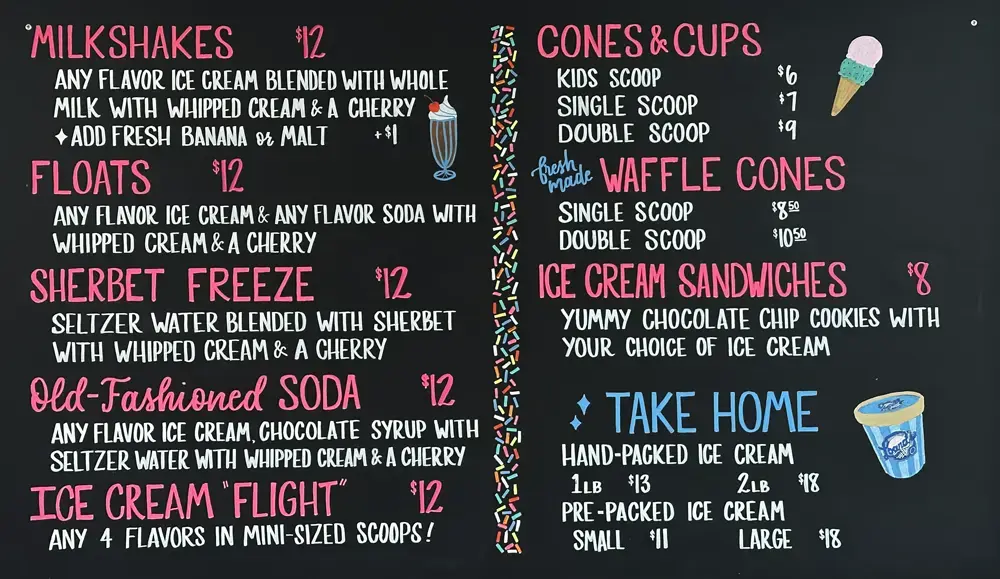 MILKSHAKES $12
ANY FLAVOR ICE CREAM BLENDED WITH WHOLE
MILK WITH WHIPPED CREAM & A CHERRY
✦ADD FRESH BANANA or MALT +$1
FLOATS $12
ANY FLAVOR ICE CREAM & ANY FLAVOR SODA WITH
WHIPPED CREAM & A CHERRY
SHERBET FREEZE $12
SELTZER WATER BLENDED WITH SHERBET
WITH WHIPPED CREAM & A CHERRY
Old-Fashioned SODA $12
ANY FLAVOR ICE CREAM, CHOCOLATE SYRUP WITH
SELTZER WATER WITH WHIPPED CREAM & A CHERRY
ICE CREAM "FLIGHT" $12
ANY 4 FLAVORS IN MINI-SIZED SCOOPS!
CONES & CUPS
KIDS SCOOP $6
SINGLE SCOOP $7
DOUBLE SCOOP $9
fresh made WAFFLE CONES
SINGLE SCOOP $8.50
DOUBLE SCOOP $10.50
ICE CREAM SANDWICHES $8
YUMMY CHOCOLATE CHIP COOKIES WITH
YOUR CHOICE OF ICE CREAM
TAKE HOME
HAND-PACKED ICE CREAM
1LB $13 2LB $18
PRE-PACKED ICE CREAM
SMALL $11 LARGE $18